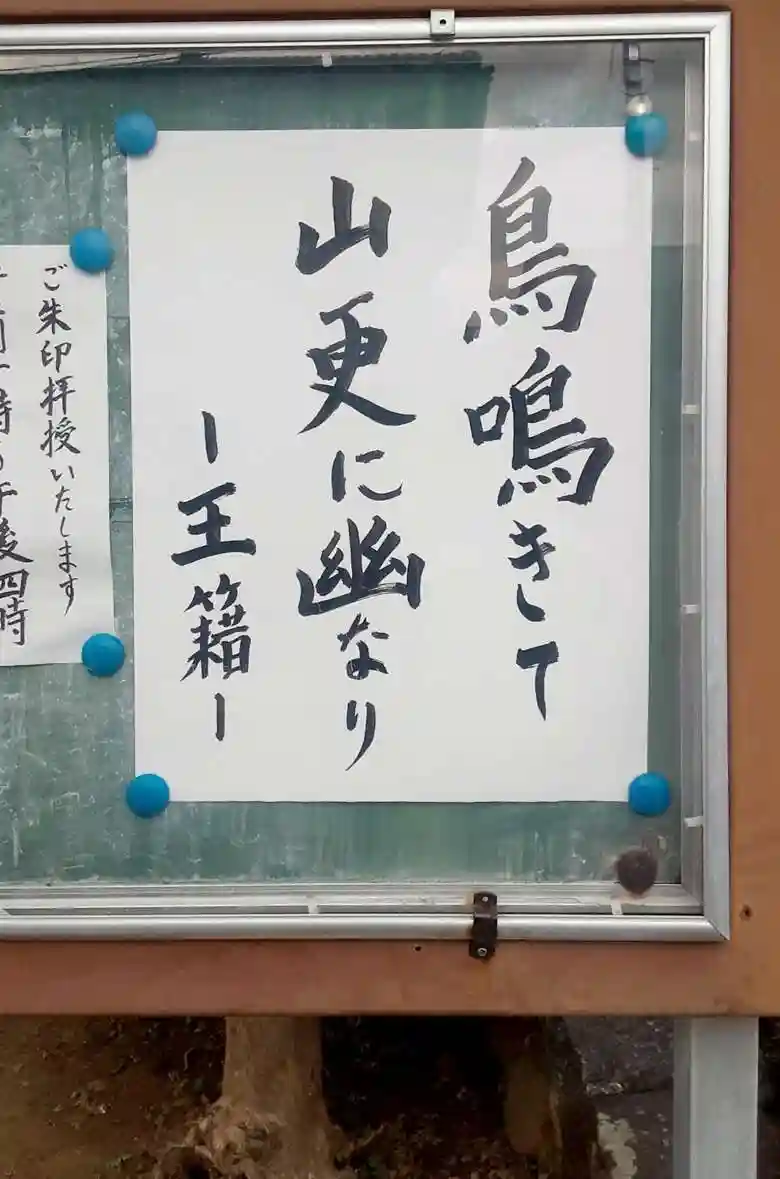 鳥鳴きて
山更に幽なり
ー王籍ー
ご朱印拝授いたします